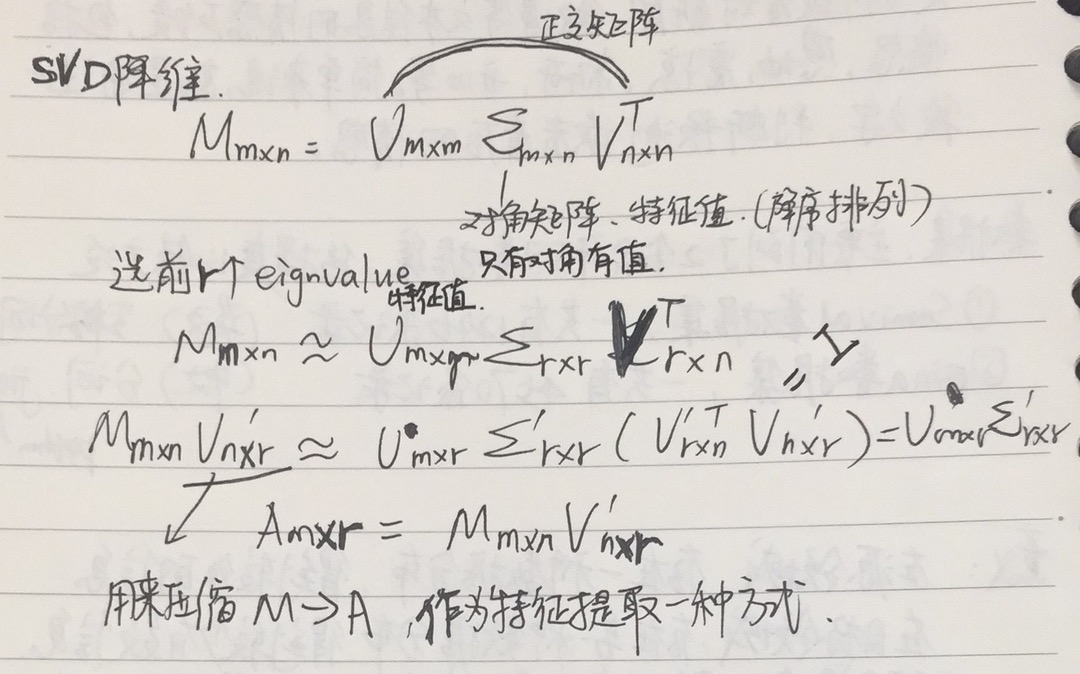 正交矩阵
SVD降维.
M_{m×n} = U_{m×m} Σ_{m×n} V^T_{n×n}
对角矩阵、特征值.(降序排列)
只有对角有值.
选前r个eignvalue
特征值.
M_{m×n} ≈ U_{m×r} Σ_{r×r} V^T_{r×n}
I
M_{m×n} V'_{n×r} ≈ U_{m×r} Σ'_{r×r} (V'^T_{r×n} V'_{n×r}) = U_{m×r} Σ'_{r×r}
A_{m×r} = M_{m×n} V'_{n×r}
用来压缩 M→A,作为特征提取一种方式.